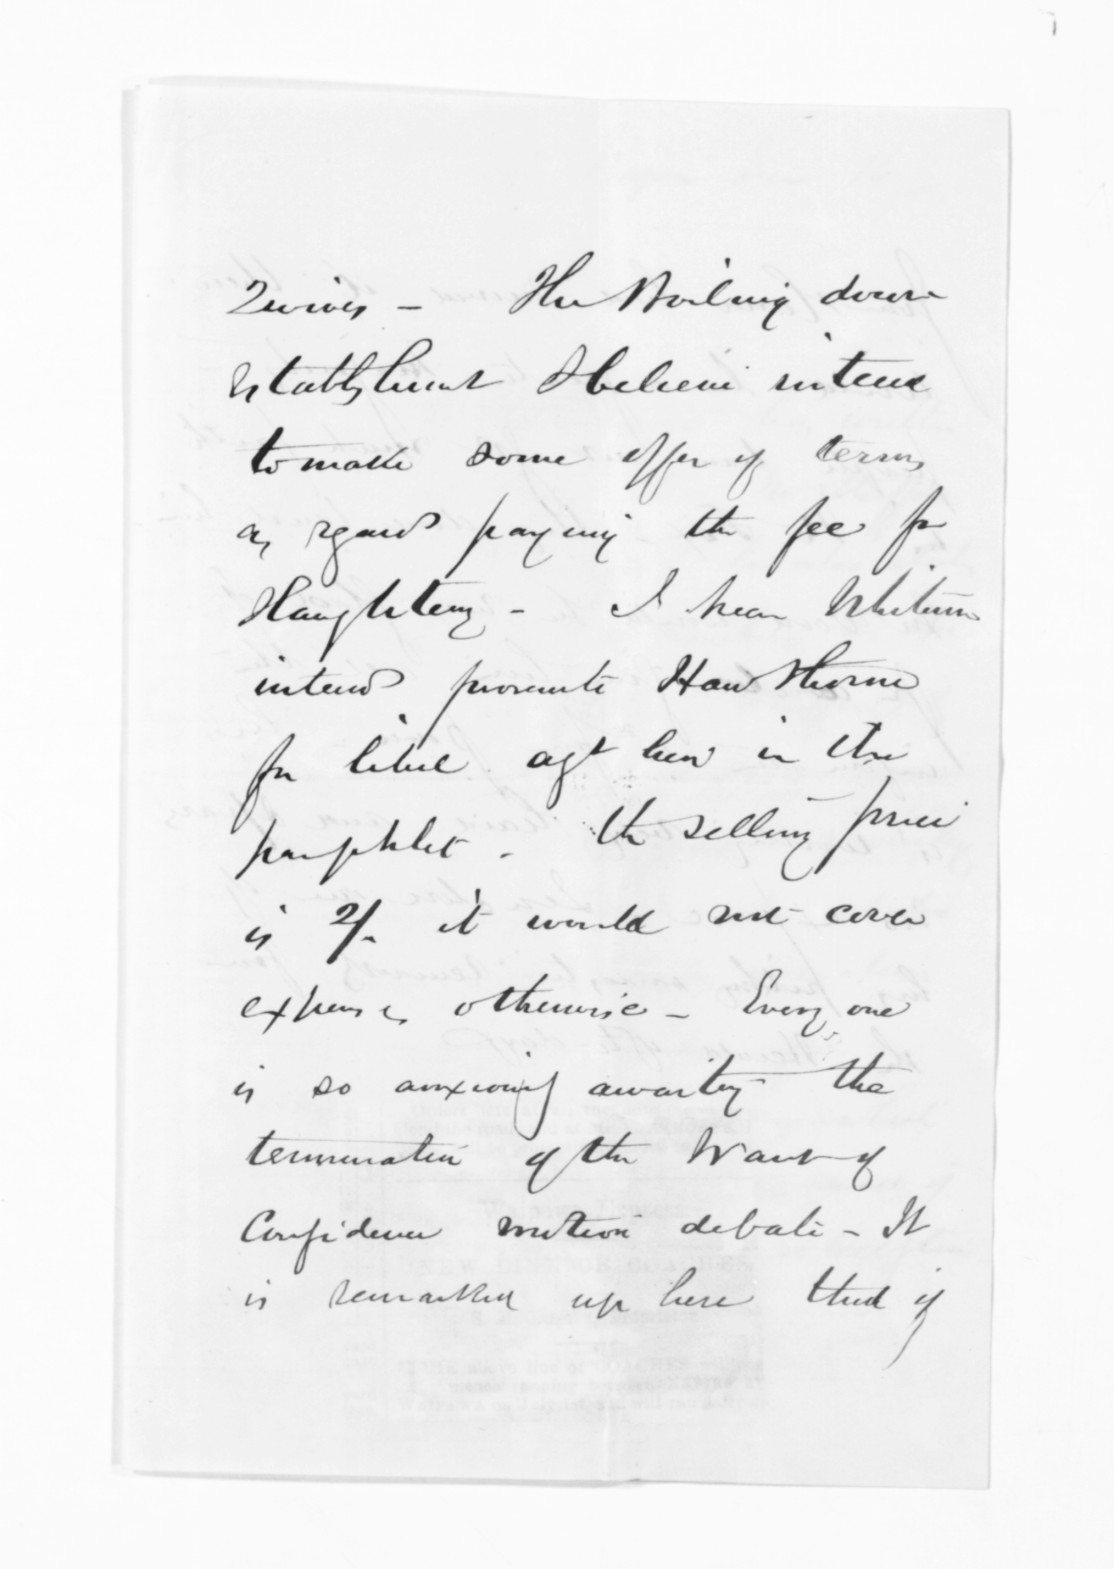 The Boiling down
Establishment I believe intend
to make some offer of terms
as regards paying the fee for
Slaughtering - I hear Whitmore
intends prosecute Hawthorne
for libel agt him in the
pamphlet. - the selling price
is 2/- it would not cover
expenses otherwise - Every one
is so anxiously awaiting the
termination of the Want of
Confidence motion debate - It
is remarked up here that if